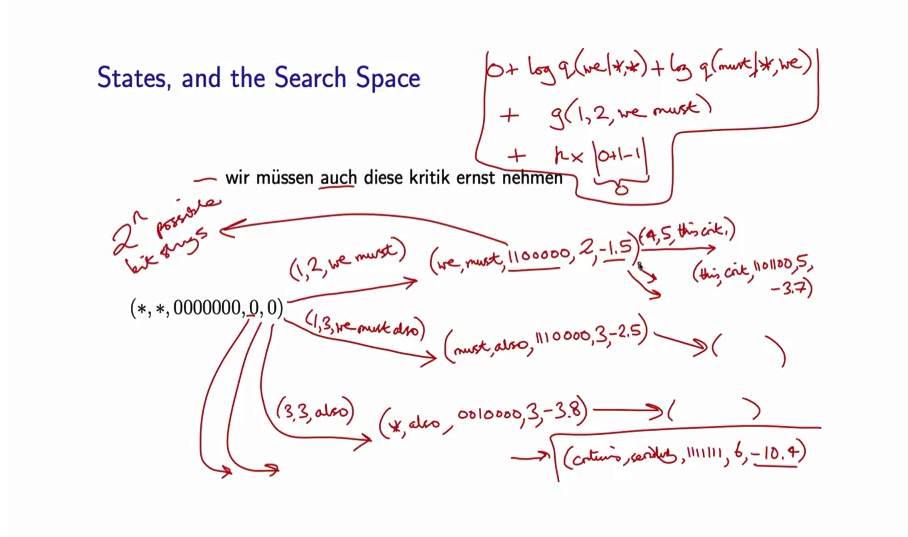 States, and the Search Space
0+ log q(we|*,*) + log q(must|*,we)
+ g(1,2,we must)
+ η× |0+1-1|
0
wir müssen auch diese kritik ernst nehmen
2ⁿ possible
bit strings
(1,2,we must)
(we,must,1100000,2,-1.5)
(4,5,this crit.)
(this,crit,1101100,5,
-3.7)
(*,*,0000000,0,0)
(1,3,we must also)
(must,also,1110000,3,-2.5)
( )
(3,3,also)
(*,also,0010000,3,-3.8)
( )
(criticism,seriously,1111111,6,-10.4)